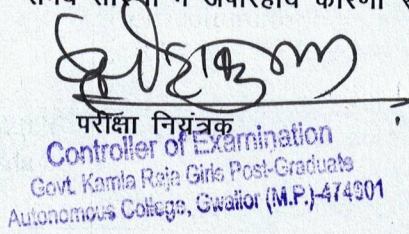 समय सारिणी में अपरिहार्य कारणों
परीक्षा नियंत्रक
Controller of Examination
Govt. Kamla Raja Girls Post-Graduate
Autonomous College, Gwalior (M.P.)-474001